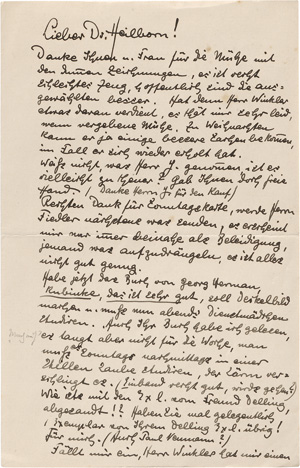 Lieber Dr. Heilborn!
Danke Ihnen u. Frau für die Mühe mit
den Zeichnungen, es ist recht
schlechtes Zeug, hoffentlich sind die aus-
gewählten besser. Hat denn Herr Winkler
etwas daran verdient, es thät mir sehr leid,
wenn vergebene Mühe. Zu Weihnachten
kann er ja einige bessere Sachen bekommen,
im Fall er sich wieder erholt hat.
Weiß nicht, was Herr J. genommen, ist es
vielleicht zu theuer? Gab Ihnen doch freie
Hand. (Danke Herrn J. für den Kauf)
Besten Dank für Sonntagskarte, werde Herrn
Fiedler nächstens was senden, es erscheint
mir nur immer beinahe als Beleidigung,
jemand was aufzudrängeln, es ist alles
nicht gut genug.
Habe jetzt das Buch von Georg Herman,
Kubinke, das ist sehr gut, soll Deckelbild
machen u. muß nun abends Dienstmädchen
studiren. Auch Ihr Buch habe ich gelesen,
es langt aber nicht für die Woche, man
muß es Sonntags nachmittags in einer
stillen Laube studiren, der Lärm ver-
schlingt es. (Einband recht gut, wirds gehen?)
Wie ists mit den Ex. v. Freund Delling,
abgesandt!? Haben Sie mal gelegentlich
1 Exemplar von Ihrem Delling Ex. übrig!
Für mich. (Auch Paul Neumann?)
Fällt mir ein, Herr Winkler hat mir einen